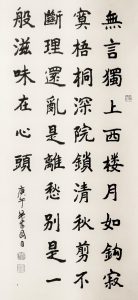 無言獨上西楼月如鈎寂
寞梧桐深院鎖清秋剪不
斷理還亂是離愁別是一
般滋味在心頭